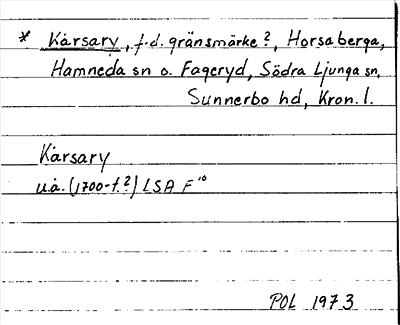 * Kärsary, f.d. gränsmärke?, Horsaberga,
Hamneda sn o. Fageryd, Södra Ljunga sn,
Sunnerbo hd, Kron. l.
Kärsary
u.å. (1700-t.?) LSA F¹⁰
POL 1973